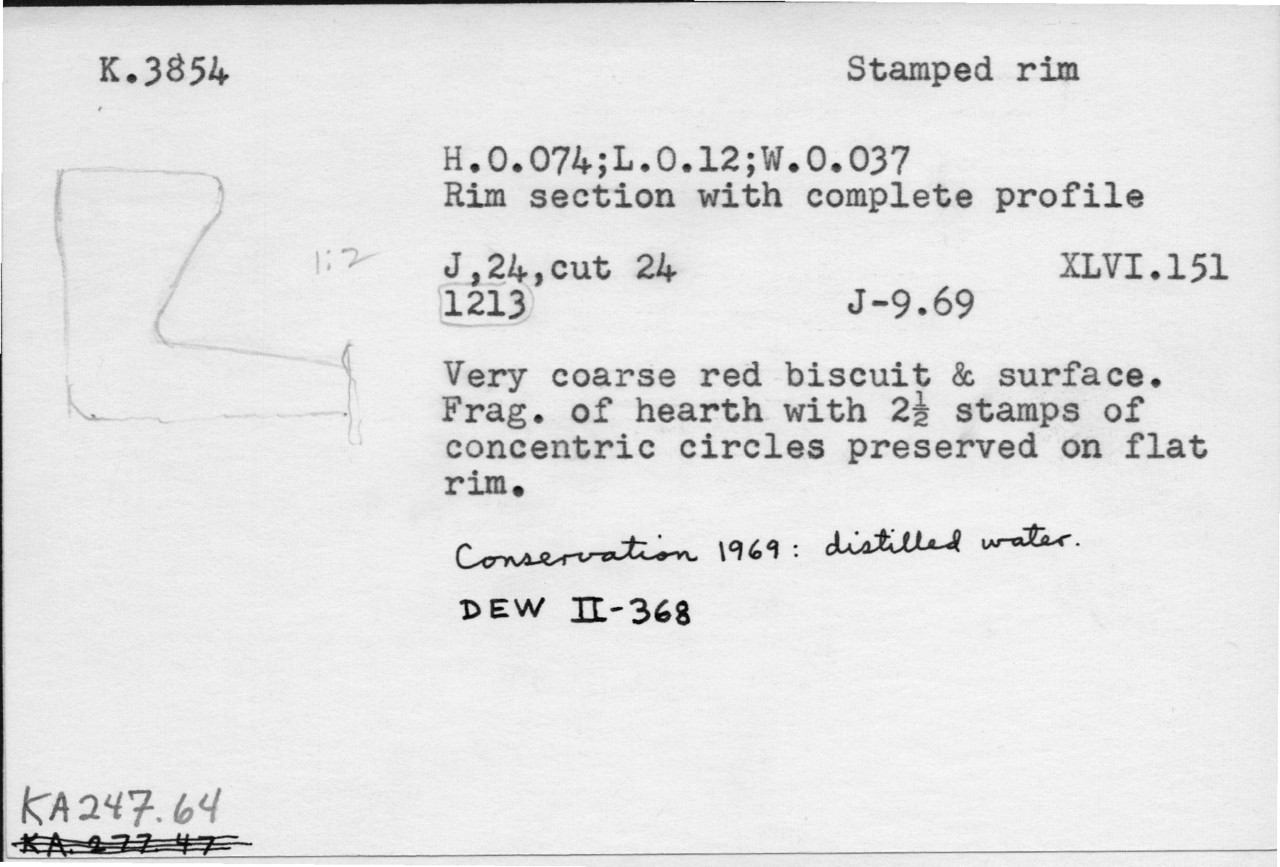 K.3854 Stamped rim
H.0.074;L.0.12;W.0.037
Rim section with complete profile
1:2
J,24,cut 24 XLVI.151
1213 J-9.69
Very coarse red biscuit & surface.
Frag. of hearth with 2½ stamps of
concentric circles preserved on flat
rim.
Conservation 1969: distilled water.
DEW II-368
KA247.64
KA. 277.47